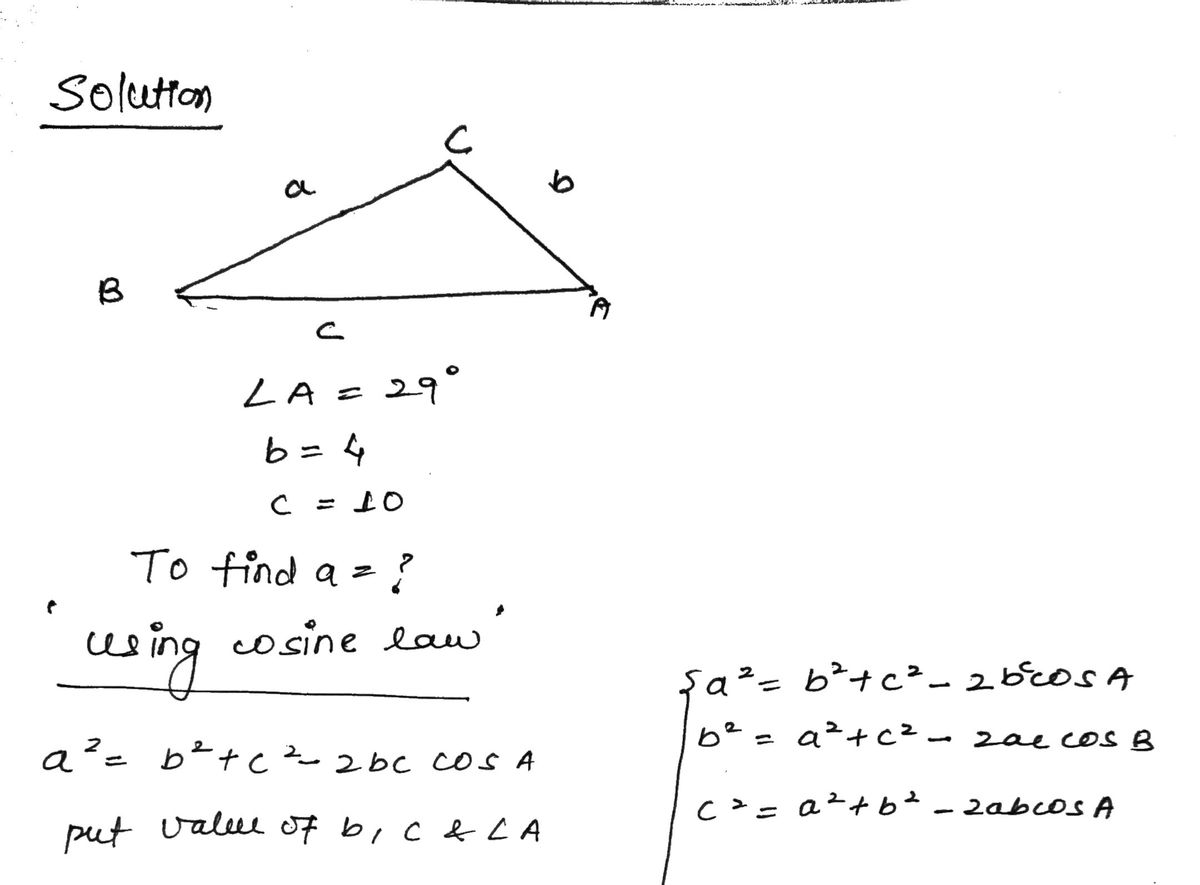 Solution
C
a
b
B
A
c
∠A = 29°
b = 4
c = 10
To find a = ?
'using cosine law'
a² = b² + c² - 2bc cos A
put value of b, c & ∠A
{a² = b² + c² - 2bc cos A
b² = a² + c² - 2ac cos B
c² = a² + b² - 2ab cos A